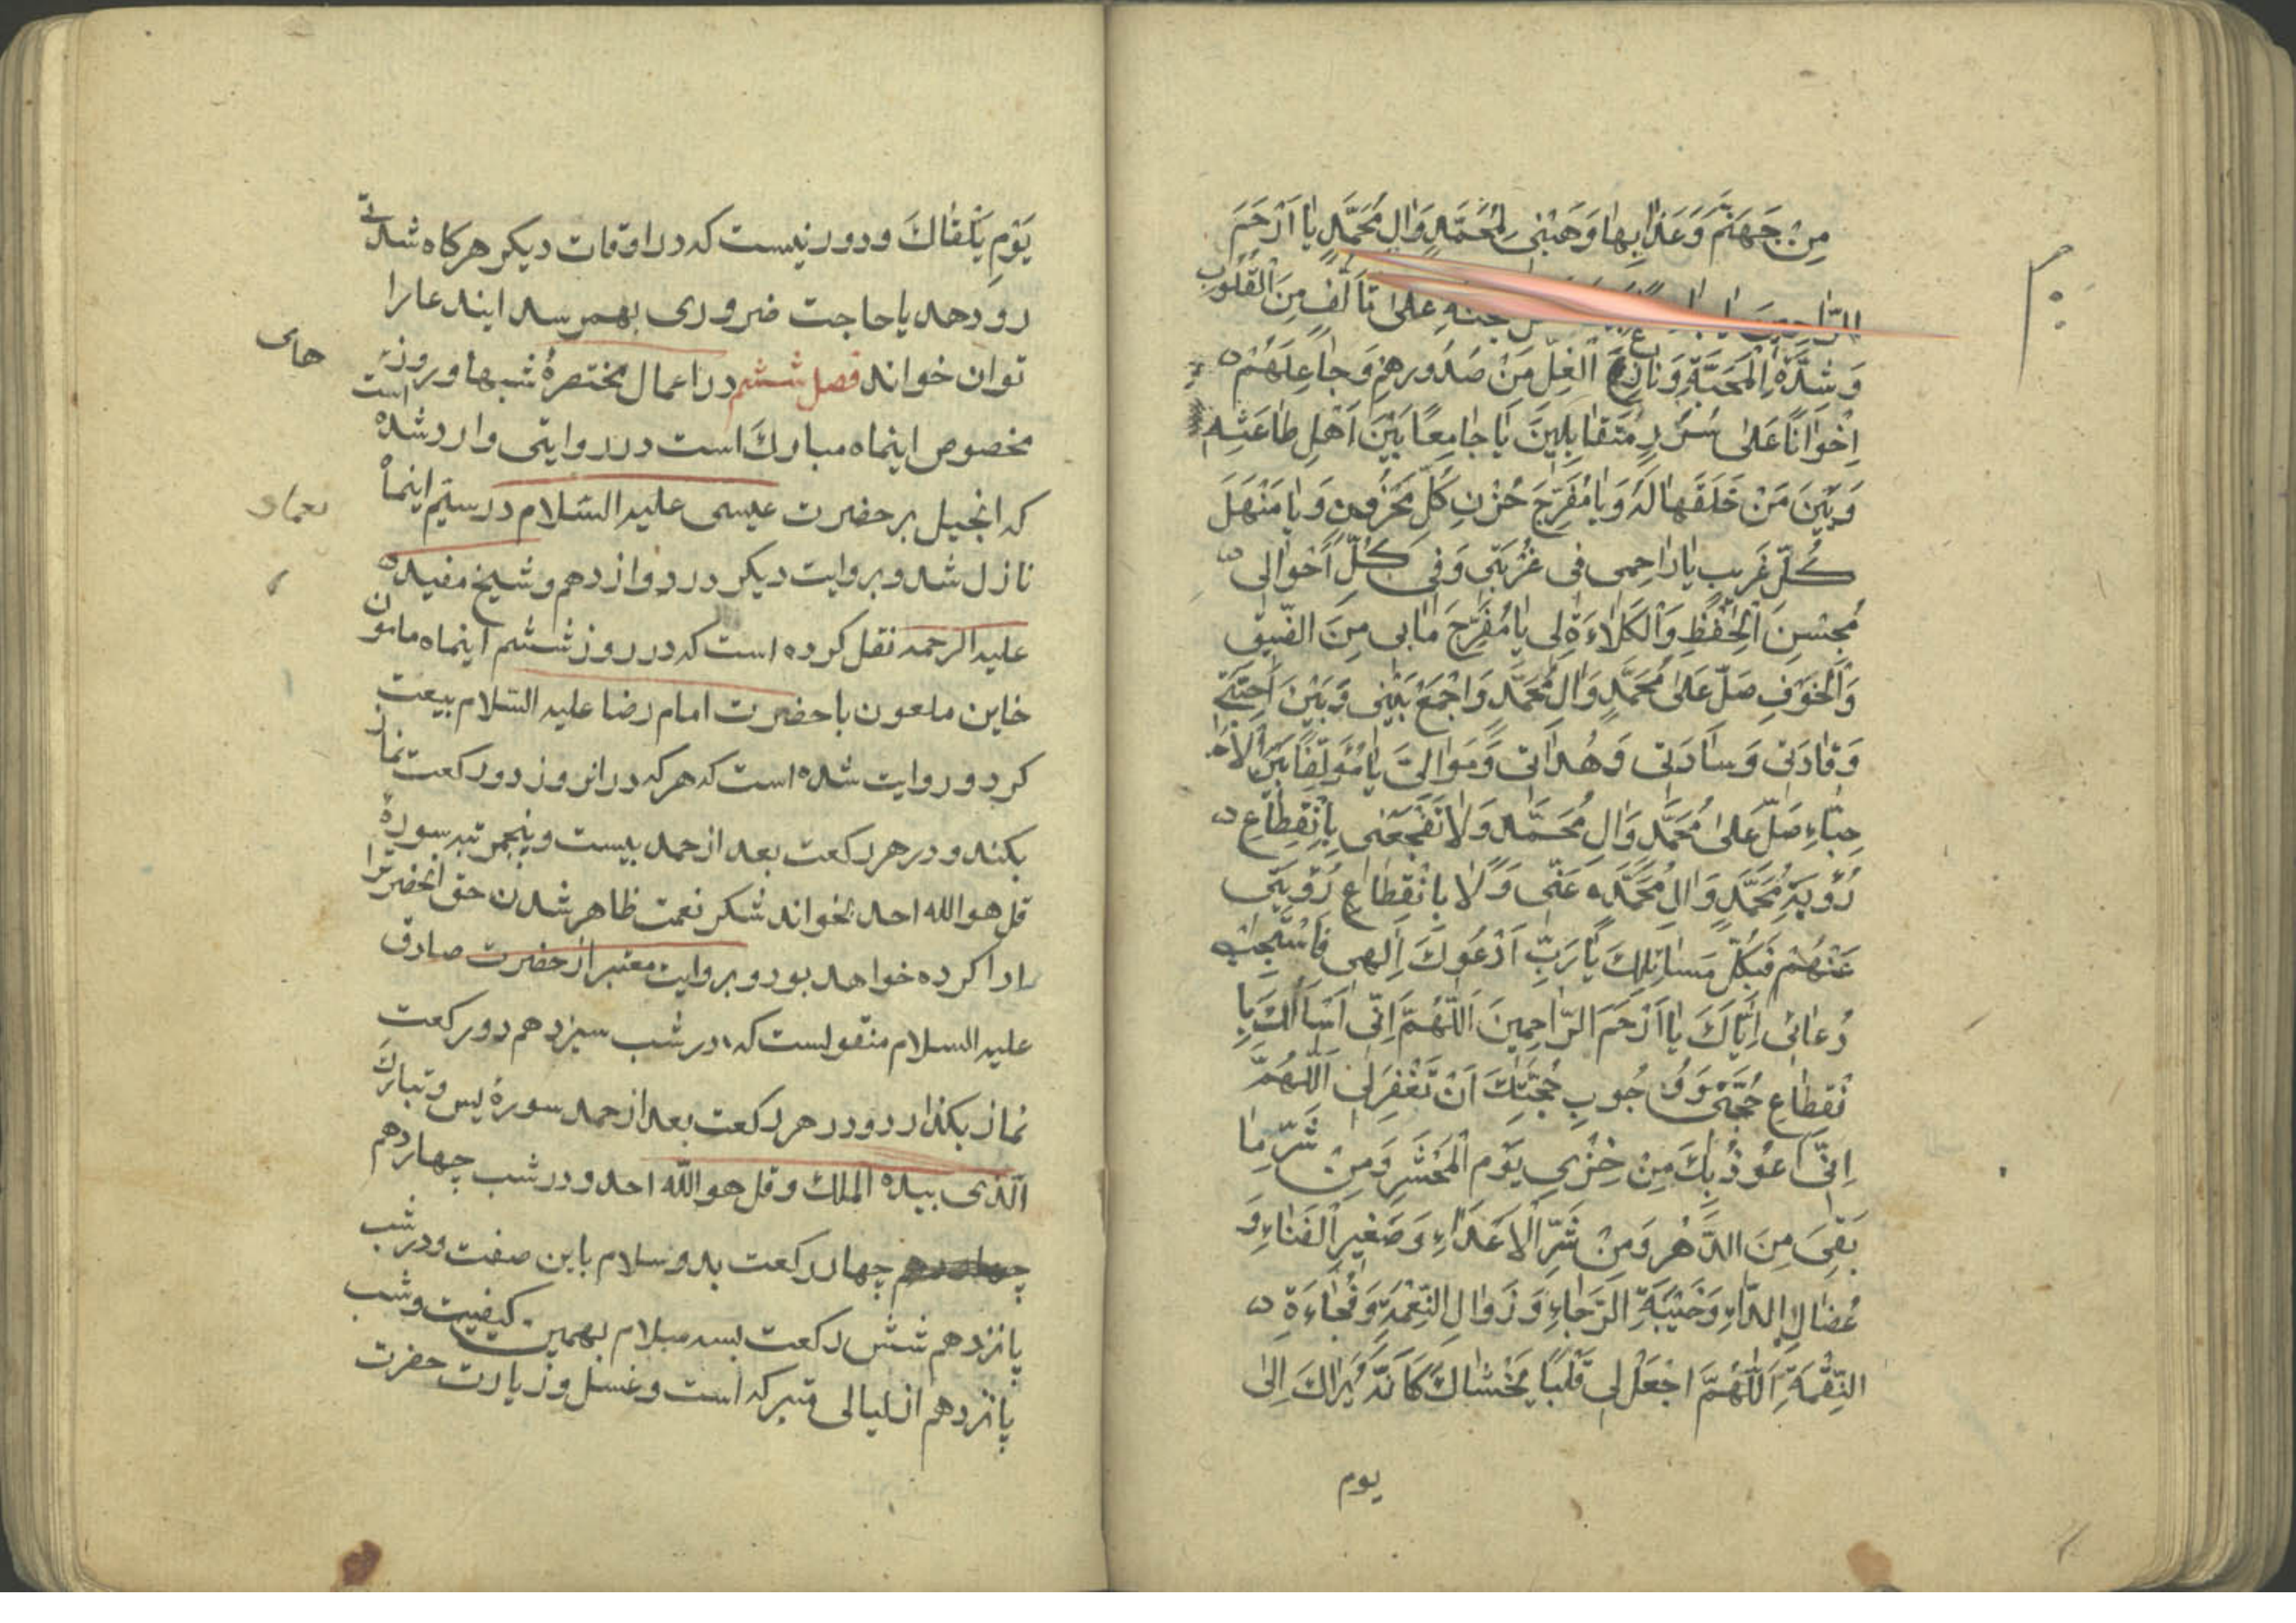 مِنْ جَهَنَّمَ وَعَذَابِهَا وَهَبْنِي لِمُحَمَّدٍ وَآلِ مُحَمَّدٍ يَا أَرْحَمَ
الرَّاحِمِينَ يَا عَلَى تَأَلُّفٍ مِنَ الْقُلُوبِ
وَشِدَّةِ الْمَحَبَّةِ وَنَازِعَ الْغِلِّ مَنْ صُدُورِهِمْ وَجَاعِلَهُمْ
اِخْوَانًا عَلَى سُرُرٍ مُتَقَابِلِينَ يَا جَامِعًا بَيْنَ أَهْلِ طَاعَتِهِ
وَبَيْنَ مَنْ خَلَقَهَا لَهُ وَيَا مُفَرِّجَ حُزْنِ كُلِّ مَحْزُونٍ وَيَا مَنْهَلَ
كُلِّ غَرِيبٍ يَا رَاحِمِي فِي غُرْبَتِي وَفِي كُلِّ أَحْوَالِي
بِحُسْنِ الْحِفْظِ وَالْكَلَاءَةِ لِي يَا مُفَرِّجَ مَا بِي مِنَ الضِّيقِ
وَالْخَوْفِ صَلِّ عَلَى مُحَمَّدٍ وَآلِ مُحَمَّدٍ وَاجْمَعْ بَيْنِي وَبَيْنَ أَحِبَّتِي
وَقَادَتِي وَسَادَتِي وَهُدَاتِي وَمَوَالِيَّ يَا مُؤَلِّفًا بَيْنَ الْأَ
حِبَّاءِ صَلِّ عَلَى مُحَمَّدٍ وَآلِ مُحَمَّدٍ وَلَا تَفْجَعْنِي بِانْقِطَاعِ
رُؤْيَةِ مُحَمَّدٍ وَآلِ مُحَمَّدٍ عَنِّي وَلَا بِانْقِطَاعِ رُؤْيَتِي
عَنْهُمْ فَبِكُلِّ مَسَائِلِكَ يَا رَبِّ أَدْعُوكَ إِلَهِي فَاسْتَجِبْ
دُعَائِي إِيَّاكَ يَا أَرْحَمَ الرَّاحِمِينَ اَللَّهُمَّ إِنِّي أَسْأَلُكَ بِا
نْقِطَاعِ حُجَّتِي وَوُجُوبِ حُجَّتِكَ أَنْ تَغْفِرَ لِي اَللَّهُمَّ
اِنِّي أَعُوذُ بِكَ مِنْ خِزْيِ يَوْمِ الْمَحْشَرِ وَمِنْ شَرِّ مَا
بَقِيَ مِنَ الدَّهْرِ وَمِنْ شَرِّ الْأَعْدَاءِ وَصَغِيرِ الْفَنَاءِ وَ
عُضَالِ الدَّاءِ وَخَيْبَةِ الرَّجَاءِ وَزَوَالِ النِّعْمَةِ وَفُجَاءَةِ
النِّقْمَةِ اَللَّهُمَّ اجْعَلْ لِي قَلْبًا يَخْشَاكَ كَأَنَّهُ يَرَاكَ إِلَى
يوم
يَوْمِ يَلْقَاكَ ودور نيست كه در اوقات ديكر هركاه شدتى
رو دهد يا حاجت ضرورى بهم رسد ايندعا را
توان خواند فصل ششم در اعمال مختصرۀ شبها و روز
مخصوص اينماه مبارك است در روايتى وارد شده است
كه انجيل بر حضرت عيسى عليه السلام در سيّم اينماه
نازل شد و بروايت ديكر در دوازدهم و شيخ مفيد
عليه الرحمه نقل كرده است كه در روز ششم اينماه مامون
خاين ملعون با حضرت امام رضا عليه السلام بيعت
كرد و روايت شده است كه هر كه در انروز دو ركعت نماز
بكند و در هر ركعت بعد از حمد بيست و پنجمرتبه سورۀ
قل هو الله احد بخواند شكر نعمت ظاهر شدن حق انحضرترا
ادا كرده خواهد بود و بروايت معتبر از حضرت صادق
عليه السلام منقولست كه در شب سيزدهم دو ركعت
نماز بكذارد و در هر ركعت بعد از حمد سورۀ يس و تبارك
الّذى بيده الملك و قل هو الله احد و در شب چهاردهم
چهار ركعت بدو سلام باين صفت و در شب
پانزدهم شش ركعت بسه سلام بهمين كيفيت و شب
پانزدهم از ليالى متبركه است و غسل و زيارت حضرت